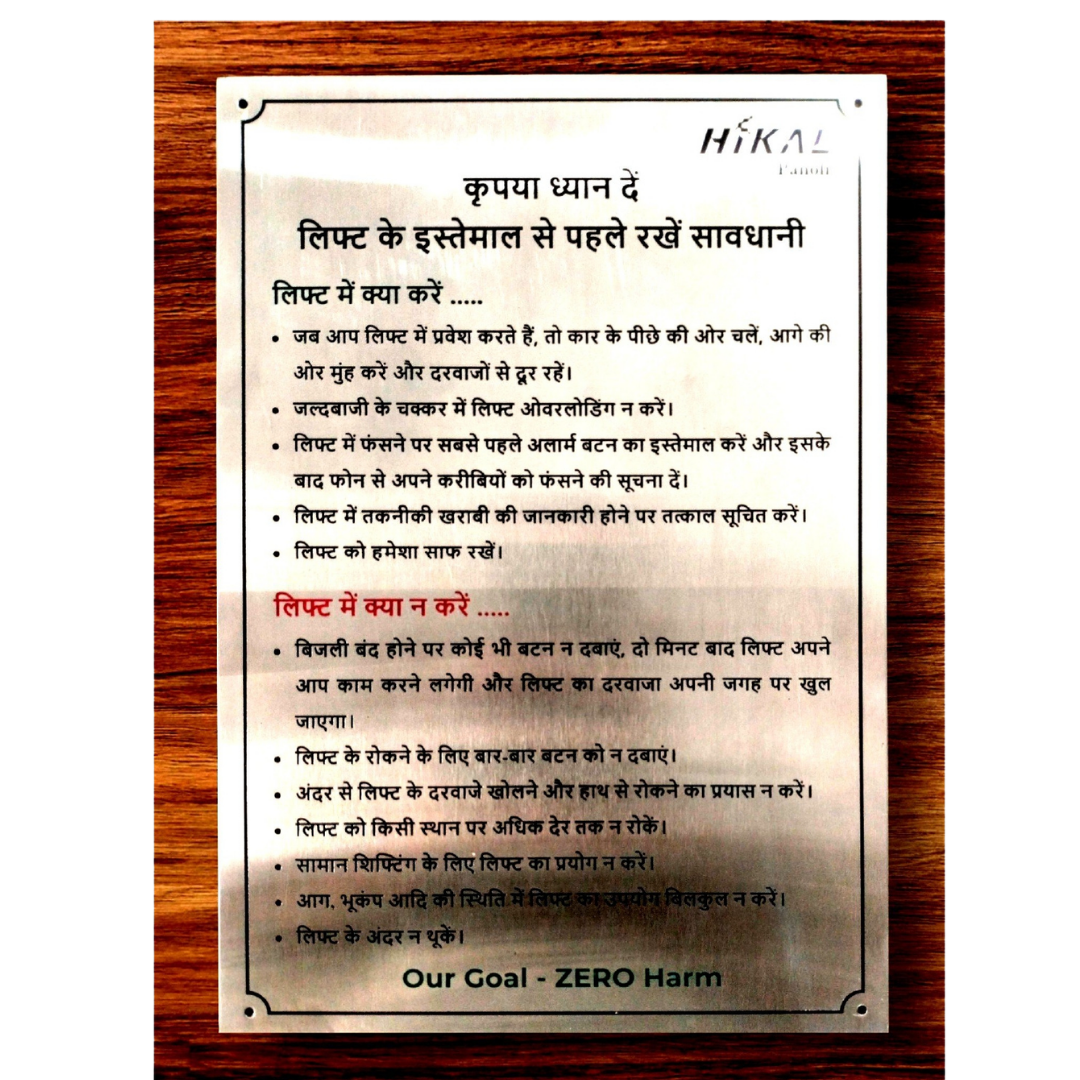 HIKAL
Panoli
कृपया ध्यान दें
लिफ्ट के इस्तेमाल से पहले रखें सावधानी
लिफ्ट में क्या करें .....
• जब आप लिफ्ट में प्रवेश करते हैं, तो कार के पीछे की ओर चलें, आगे की
ओर मुंह करें और दरवाजों से दूर रहें।
• जल्दबाजी के चक्कर में लिफ्ट ओवरलोडिंग न करें।
• लिफ्ट में फंसने पर सबसे पहले अलार्म बटन का इस्तेमाल करें और इसके
बाद फोन से अपने करीबियों को फंसने की सूचना दें।
• लिफ्ट में तकनीकी खराबी की जानकारी होने पर तत्काल सूचित करें।
• लिफ्ट को हमेशा साफ रखें।
लिफ्ट में क्या न करें .....
• बिजली बंद होने पर कोई भी बटन न दबाएं, दो मिनट बाद लिफ्ट अपने
आप काम करने लगेगी और लिफ्ट का दरवाजा अपनी जगह पर खुल
जाएगा।
• लिफ्ट के रोकने के लिए बार-बार बटन को न दबाएं।
• अंदर से लिफ्ट के दरवाजे खोलने और हाथ से रोकने का प्रयास न करें।
• लिफ्ट को किसी स्थान पर अधिक देर तक न रोकें।
• सामान शिफ्टिंग के लिए लिफ्ट का प्रयोग न करें।
• आग, भूकंप आदि की स्थिति में लिफ्ट का उपयोग बिलकुल न करें।
• लिफ्ट के अंदर न थूकें।
Our Goal - ZERO Harm